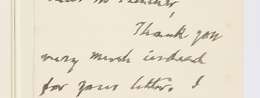 Thank you
very much indeed
for your letter. I